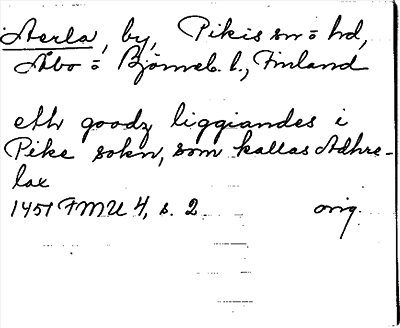 Aerla, by, Pikis sn = hd,
Åbo = Björneb. l., Finland
eth goodz liggiandes i
Pike sokn, som kallas Adhre-
lax
1451 FMU 4, s. 2 orig.